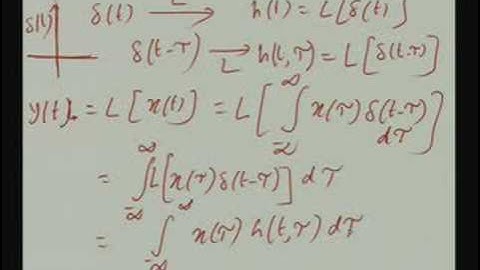 δ(t) δ(t) ⟶ h(t) = L[δ(t)]
L
δ(t-τ) ⟶ h(t,τ) = L[δ(t-τ)]
L
y(t) = L[x(t)] = L[∫_{-∞}^{∞} x(τ) δ(t-τ) dτ]
= ∫_{-∞}^{∞} L[x(τ) δ(t-τ)] dτ
= ∫_{-∞}^{∞} x(τ) h(t,τ) dτ